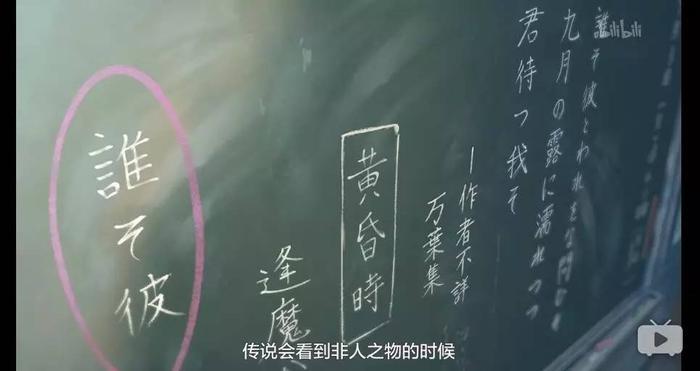 bilibili
誰そ彼とわれをな問ひそ
九月の露に濡れつつ
君待つ我そ
ー作者不詳
万葉集
黄昏時
逢魔
誰そ彼
传说会看到非人之物的时候